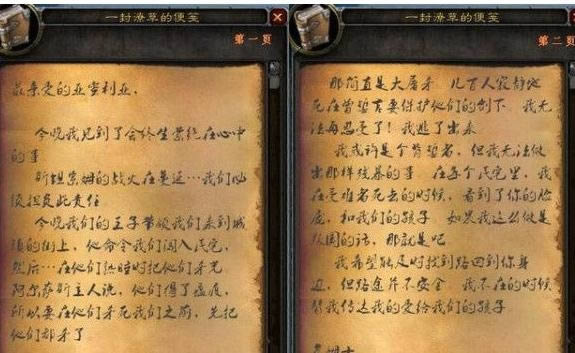 一封潦草的便笺
第一頁
最亲爱的亚蜜利亚,
今晚我见到了会终生萦绕在心中
的事
斯坦索姆的战火在蔓延…我们必
须担负此责任
今晚我们的王子带领我们来到城
镇的街上,他命令我们闯入民宅,
然后…在他们熟睡时把他们杀死
阿尔萨斯主人说,他们得了瘟疫,
所以要在他们杀死我们之前,先把
他们都杀了
一封潦草的便笺
第二頁
那简直是大屠杀 几百人寂静地
死在曾誓言要保护他们的剑下 我无
法再忍受了!我逃了出来
我或许是个背誓者,但我无法做
出那样残暴的事 在每个民宅里,我
在受难者死去的时候,看到了你的脸
庞,和我们的孩子 如果我这么做是
叛国的话,那就是吧
我希望能及时找到路回到你身
边,但路途并不安全 我不在的时候
替我传达我的爱给我们的孩子